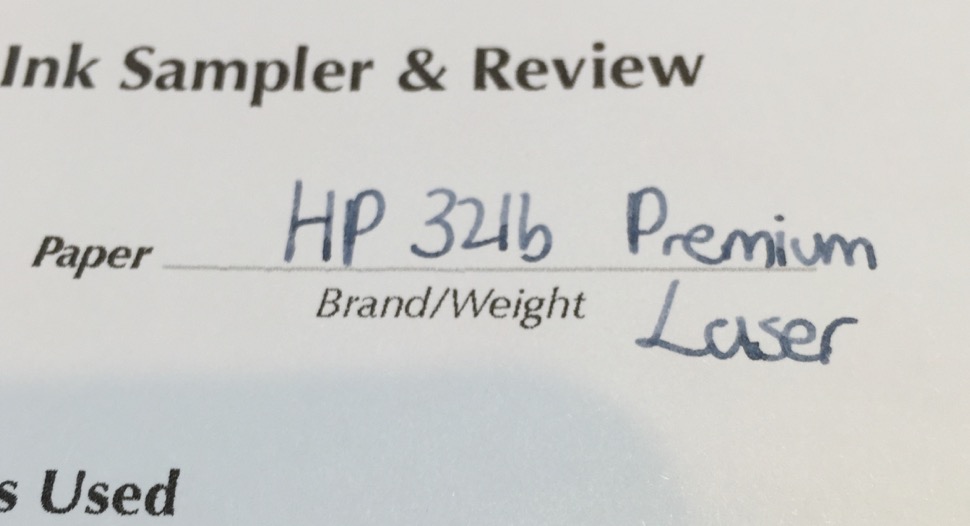 Ink Sampler & Review
Paper HP 32lb Premium
Brand/Weight Laser
s Used